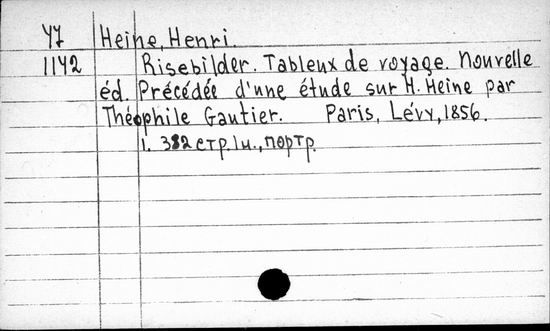 УЈ Heine, Henri.
1142 Risebilder. Tableux de voyage. Nouvelle
éd. Précédée d'une étude sur H. Heine par
Théophile Gautier. Paris, Lévy, 1856.
1. 382 стр. 1 и., портр.